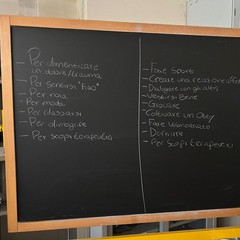 - Per dimenticare
un dolore/trauma
- Per sentirsi "Figo"
- Per noia
- Per moda
- Per rilassarsi
- Per dimagrire
- Per scopi terapeutici
- Fare Sport
- Creare una relazione
- Dialogare con gli altri
- Vestirsi Bene
- Giocare
- Coltivare un Obby
- Fare Volontariato
- Dormire
- Per scopi terapeutici